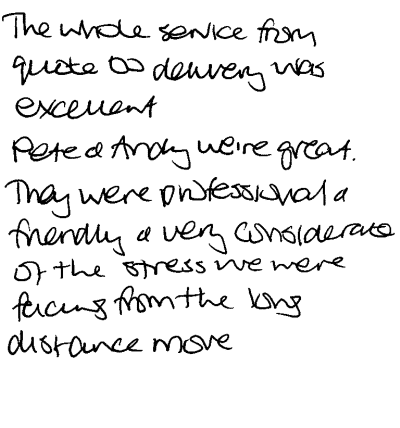 The whole service from
quote to delivery was
excellent
Pete & Andy were great.
They were professional &
friendly & very considerate
of the stress we were
facing from the long
distance move